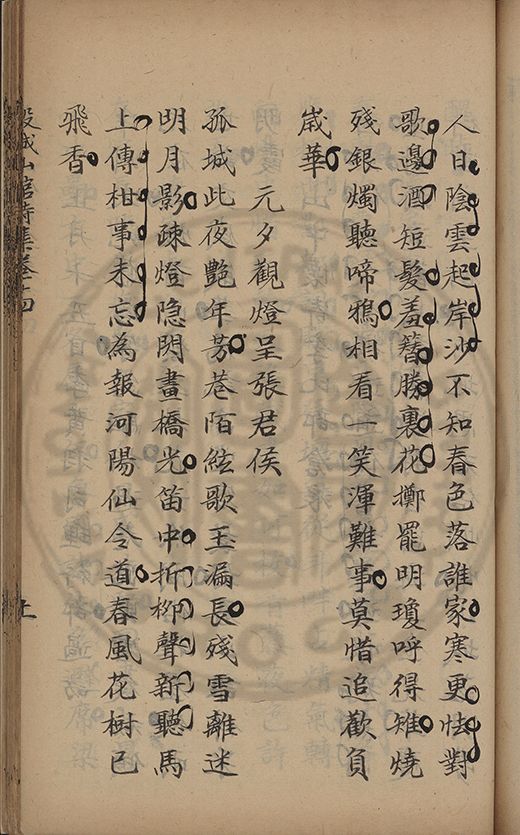 人日陰雲起岸沙不知春色落誰家寒更怯對
歌邊酒短髮羞簪勝裏花擲罷明瓊呼得雉燒
殘銀燭聽啼鴉相看一笑渾難事莫惜追歡負
歲華
元夕觀燈呈張君侯
孤城此夜艷年芳巷陌絃歌玉漏長殘雪離迷
明月影疎燈隐閃畫橋光笛中折柳聲新聽馬
上傳柑事未忘為報河陽仙令道春風花樹已
飛香
穀城山館詩集卷十四